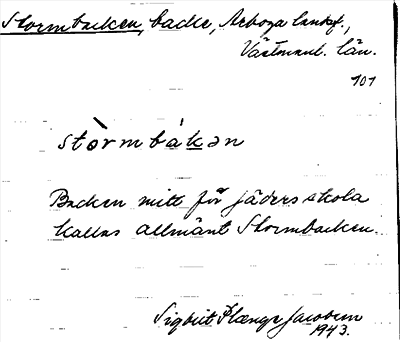 Stormbacken, backe, Arboga landsf.,
Västmanl. län.
101
stòrmbákən
Backen mitt för Jäders skola
kallas allmänt Stormbacken.
Sigbrit Plænge Jacobson
1943.